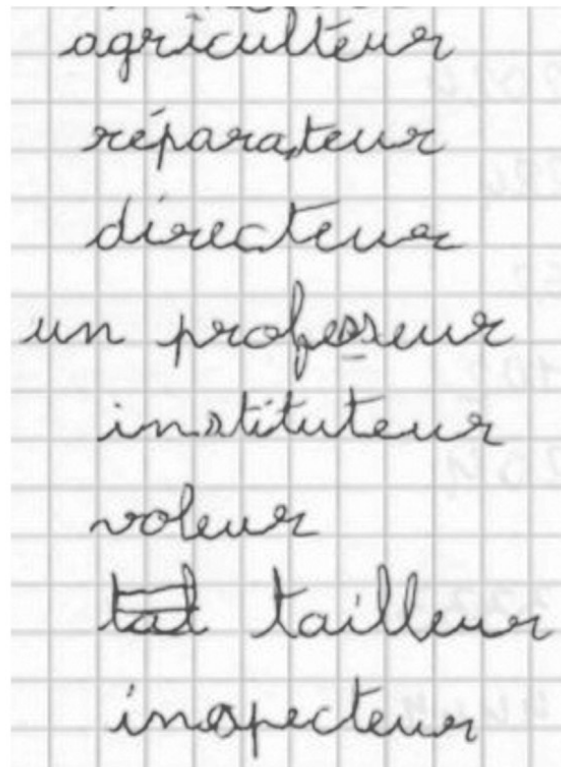 agriculteur
réparateur
directeur
un professeur
instituteur
voleur
tailleur
inspecteur